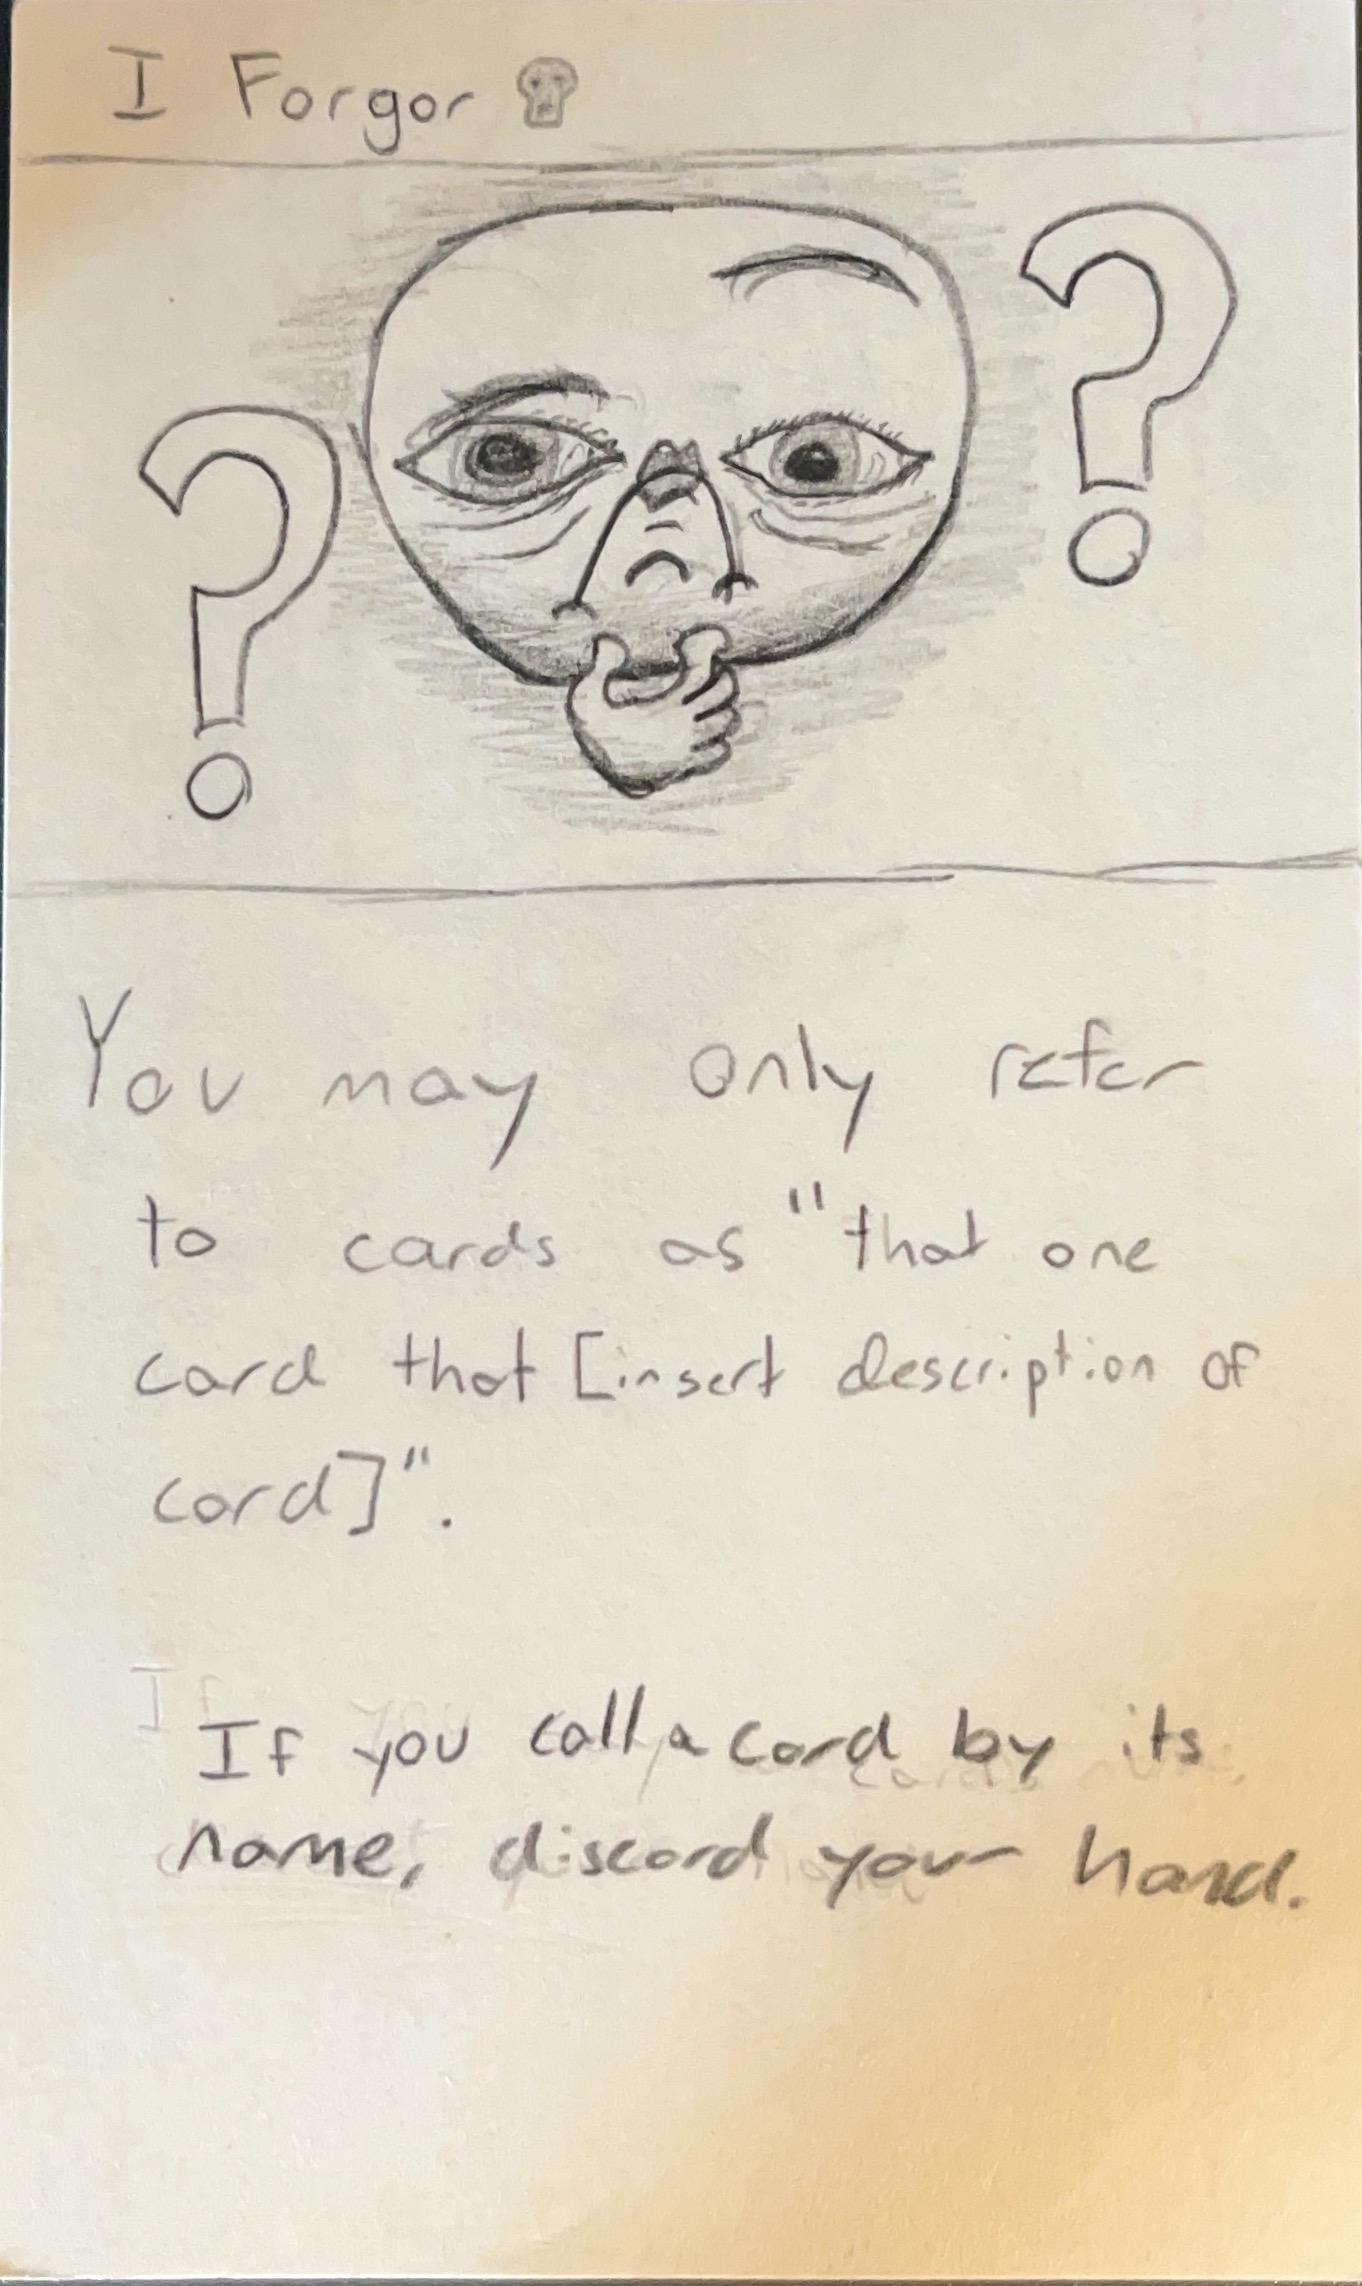 I Forgor 💀
? ?
You may only refer
to cards as "that one
card that [insert description of
card]".
If you call a card by its
name, discard your hand.